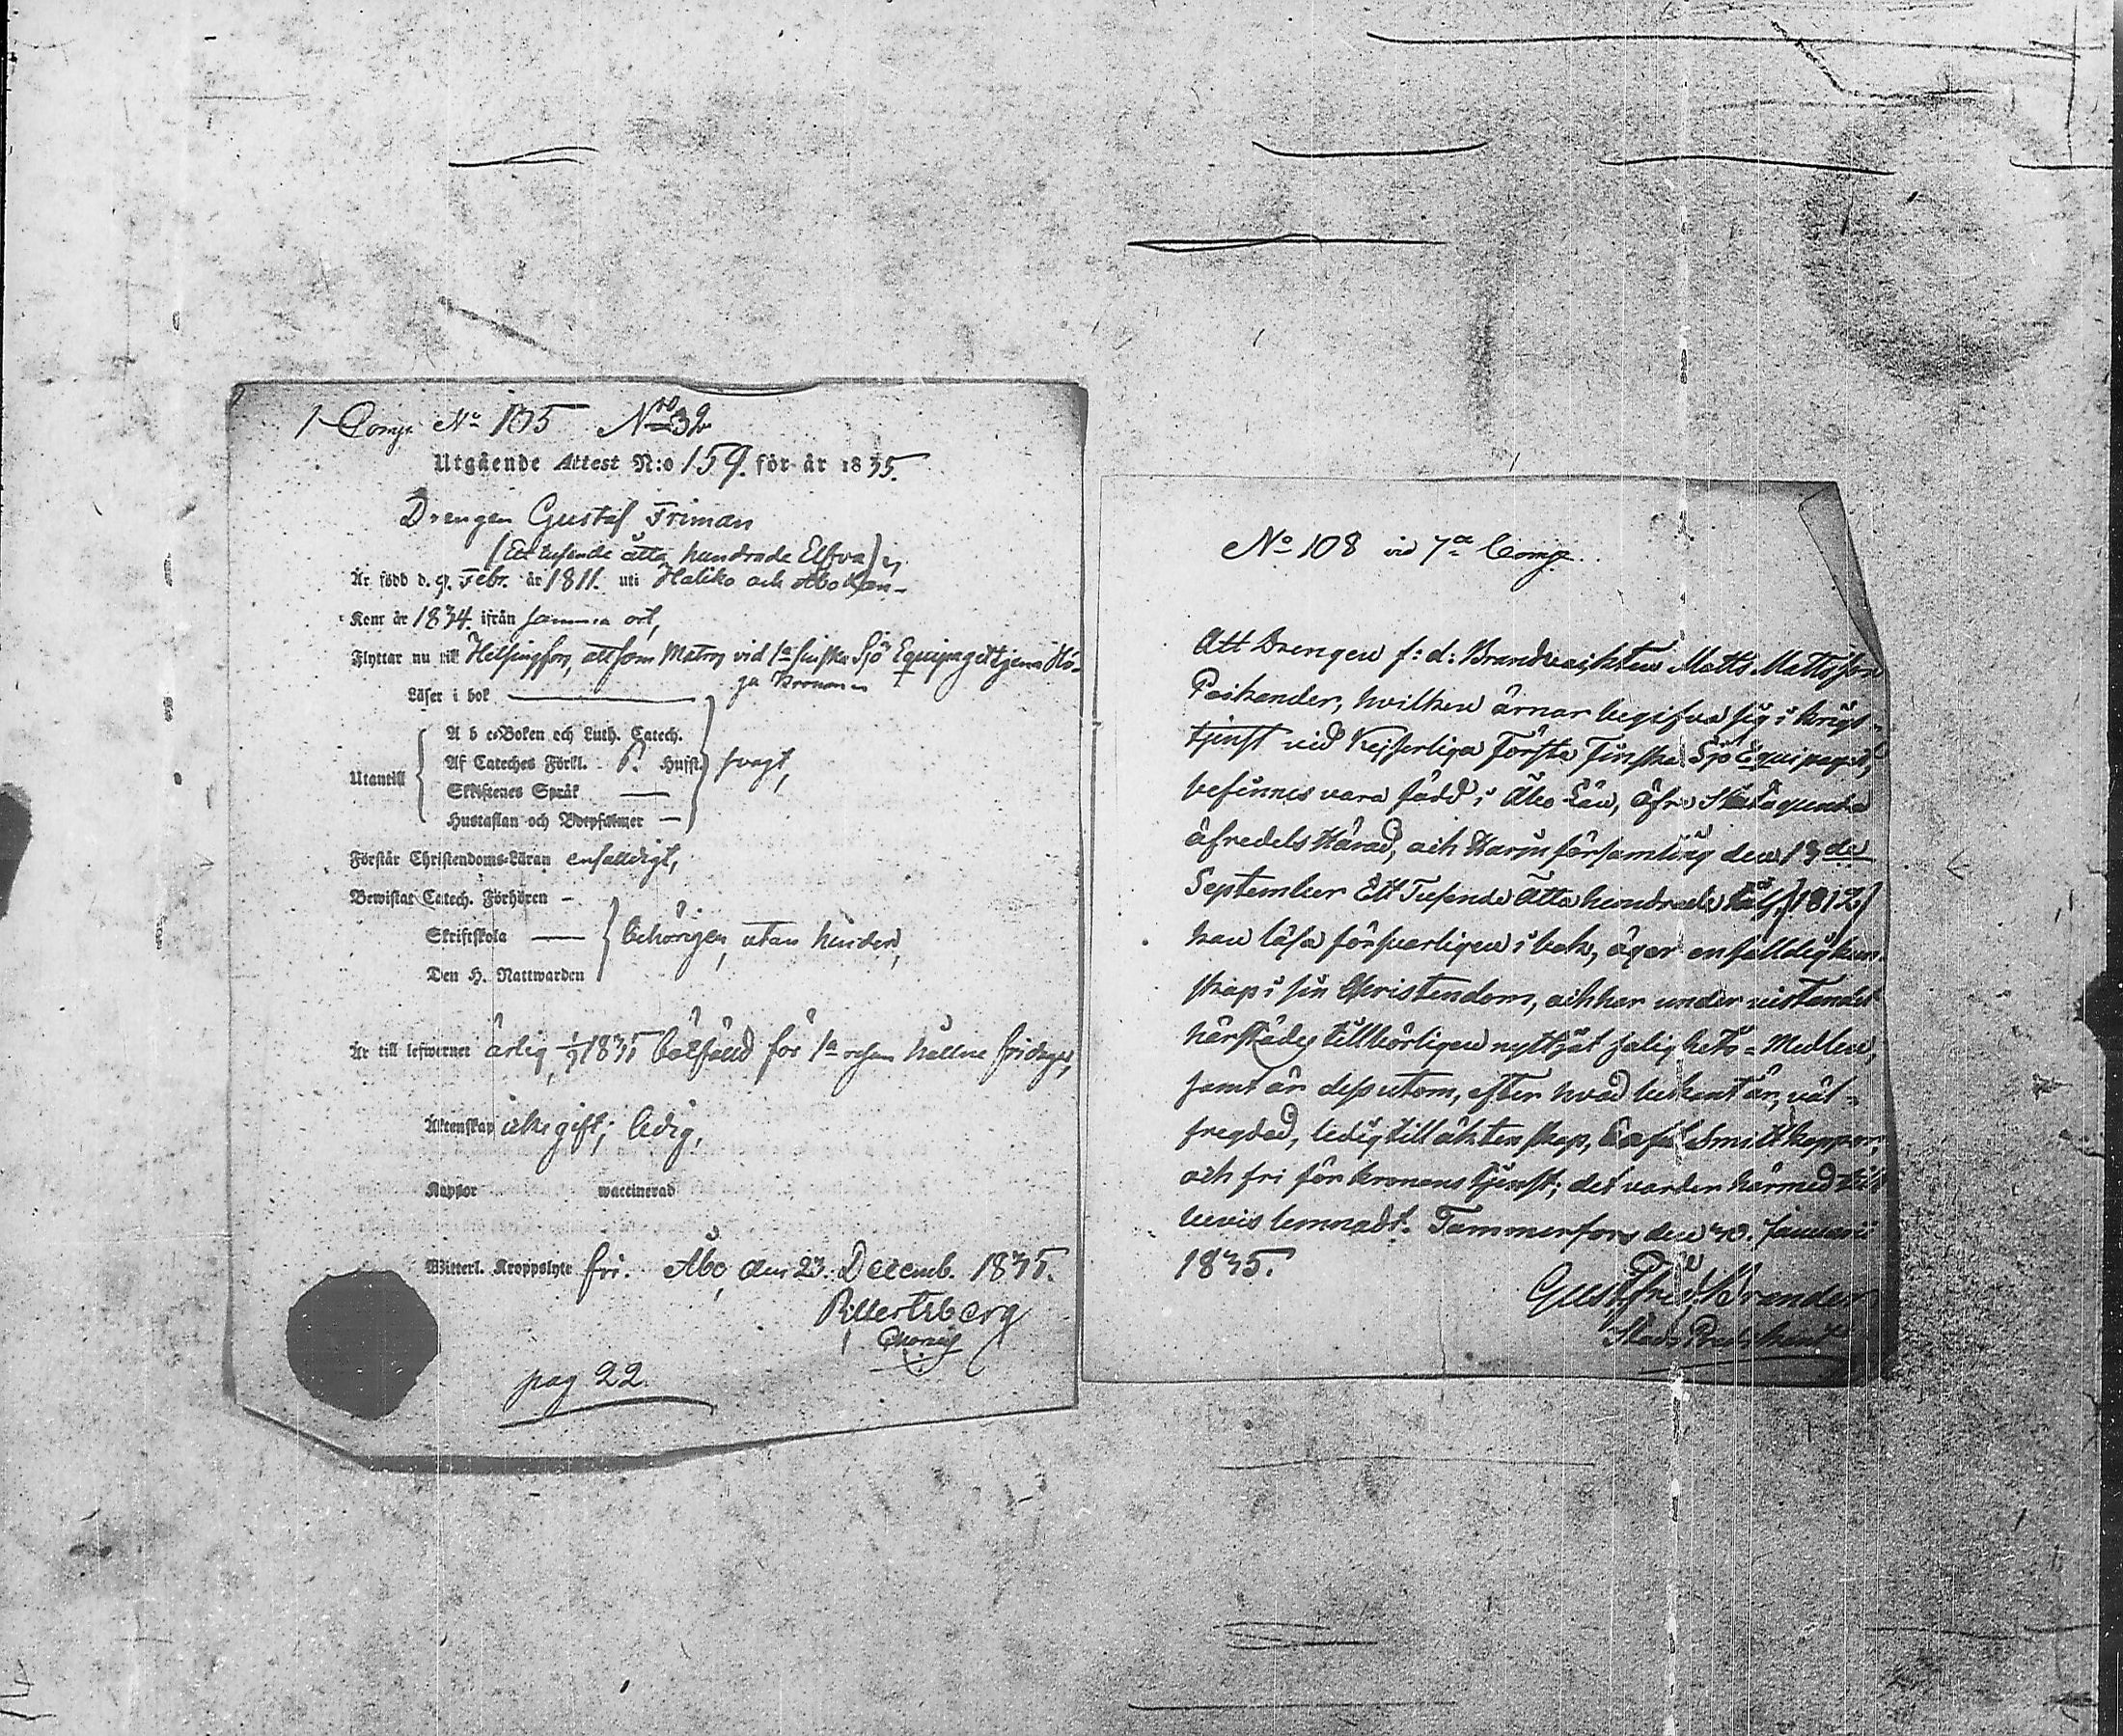 1 Comp. No 105 Nro 32
Utgående Attest N:o 159. för år 1835.
Drengen Gustaf Friman
(Ett tusende åtta hundrade Elfva)
Är född d. 9. Febr. år 1811. uti Haliko och Åbo Län
Kom år 1834. ifrån samma ort,
Flyttar nu till Helsingfors, att som Matros vid 1a finska Sjö Equipaget tjena Hö-
ga Kronan
Läser i bok
A b c-Boken och Luth. Catech.
Af Cateches Förkl. Husst. svagt,
Utantill
Skriftenes Språk
Hustaflan och Botpsalmer
Förstår Christendoms-Läran enfaldigt,
Bewistat Catech. Förhören
Skriftskola behörigen, utan hinder,
Den H. Nattwarden
Är till lefwernet ärlig, 1835 bötfälld för 1a hållne fridagar,
Äktenskap icke gift; ledig,
Koppor waccinerad
Witterl. Kroppslyte fri. Åbo, den 23. Decemb. 1835.
pag 22.
No 108 vid 7de Comp.
Att Drengen f: d: Brandvakten Matts Mattsson
Paikander, hvilken ärnar begifva sig i krigs-
tjenst vid Kejserliga Första Finska Sjö Equipaget,
befinnes vara född i Åbo Län, Öfre Satagunda
öfredels Härad, och Harju församling den 13de
September Ett Tusende Åtta hundrade Tolf (1812)
kan läsa försvarligen i bok, äger enfalldig kun-
skap i sin Christendom, och har under vistandet
härstädes tillbörligen nyttjat salighets-Medlen,
samt är dessutom, efter hvad bekant är, väl-
fregdad, ledig till äktenskap, haft Smittkoppor,
och fri för kronans tjenst; det varder härmed till
bevis lemnadt. Tammerfors den 30. Januarii
1835.